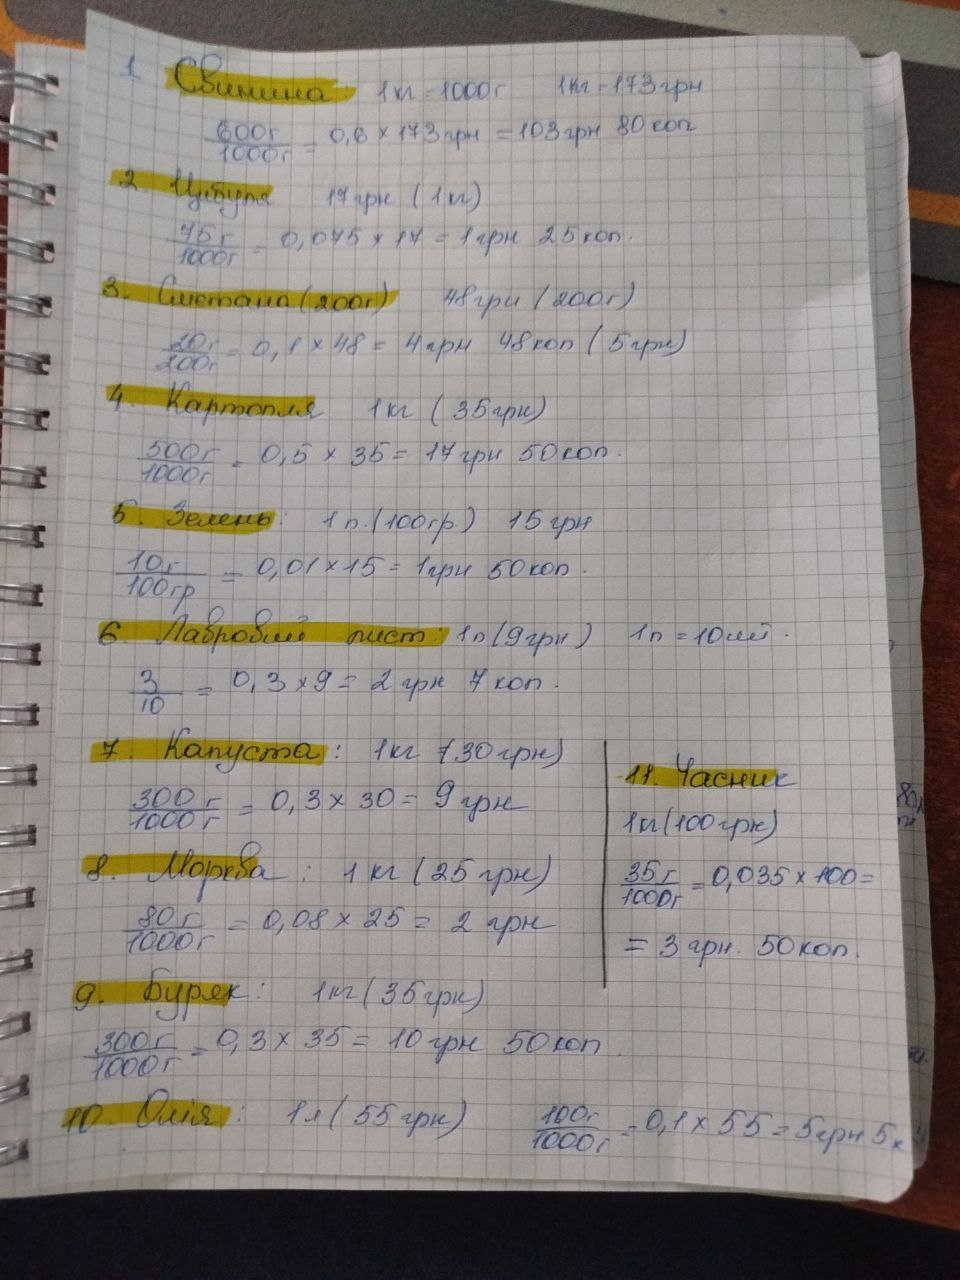 1 Свинина: 1кг = 1000г 1кг = 173грн
600г/1000г = 0,6 × 173грн = 103грн 80 коп
2. Цибуля 17грн (1кг)
75г/1000г = 0,075 × 17 = 1грн 25 коп.
3. Сметана (200г) 48грн (200г)
20г/200г = 0,1 × 48 = 4грн 48коп (5грн)
4. Картопля 1кг (35грн)
500г/1000г = 0,5 × 35 = 17грн 50коп.
5. Зелень: 1п. (100гр.) 15грн
10г/100гр = 0,01 × 15 = 1грн 50коп.
6. Лавровий лист: 1п (9грн) 1п = 10лист.
3/10 = 0,3 × 9 = 2 грн 7 коп.
7. Капуста: 1кг (30грн)
300г/1000г = 0,3 × 30 = 9грн
8. Морква: 1кг (25грн)
80г/1000г = 0,08 × 25 = 2 грн
9. Буряк: 1кг (35грн)
300г/1000г = 0,3 × 35 = 10грн 50коп.
10. Олія: 1л (55грн) 100г/1000г = 0,1 × 55 = 5грн 5к
11. Часник
1кг (100грн)
35г/1000г = 0,035 × 100 =
= 3грн. 50коп.